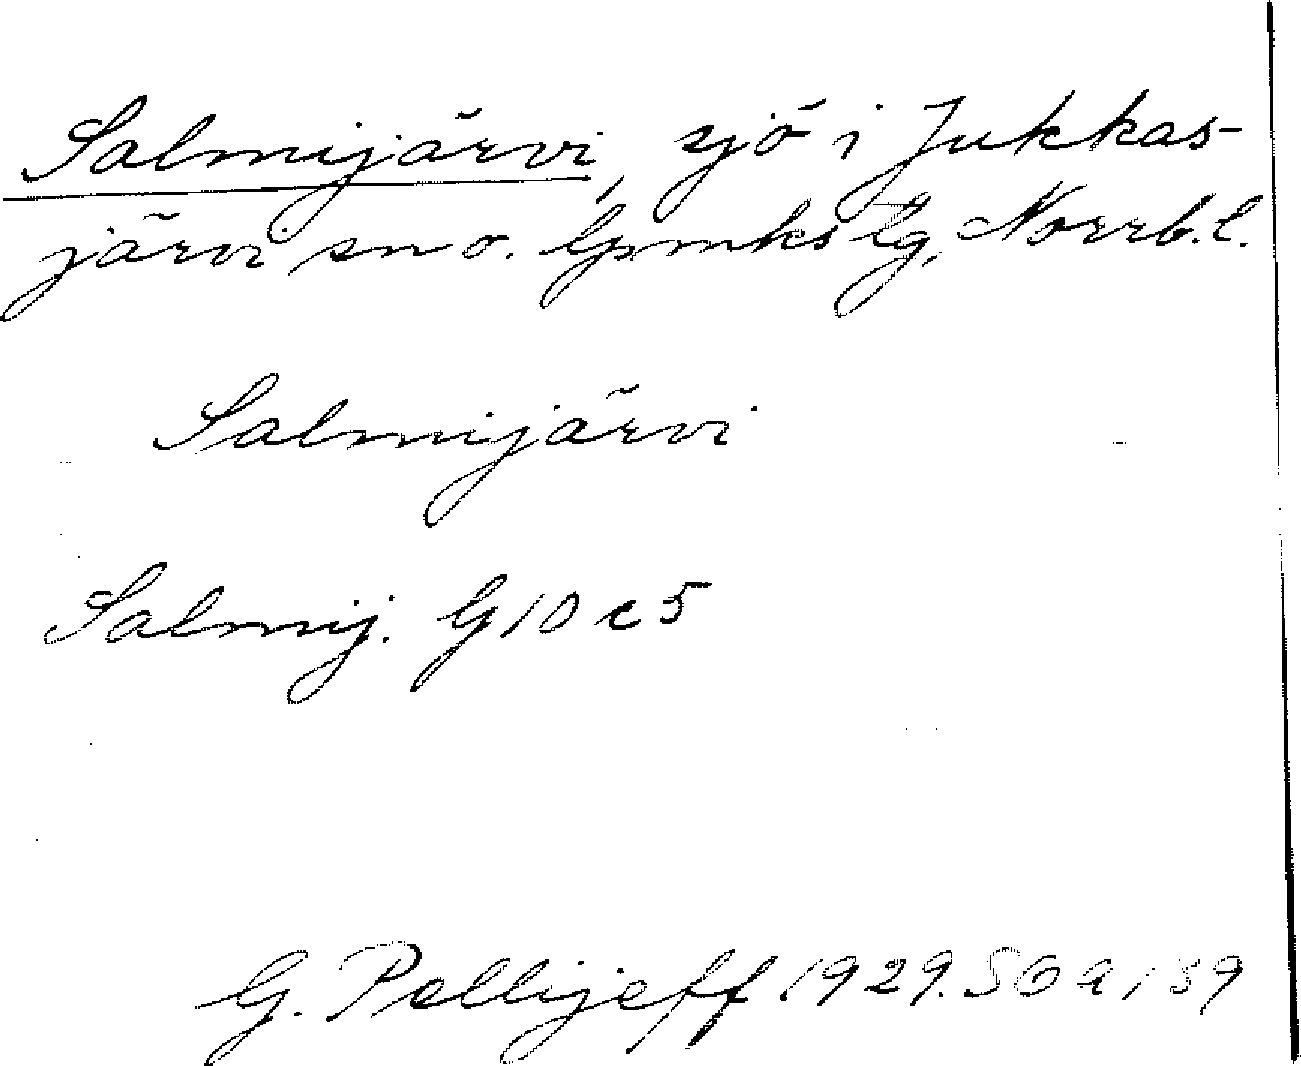 Salmijärvi, sjö i Jukkas-
järvi sn o. Gs mks lg, Norrb.l.
Salmijärvi
Salmij. G10c5
G. Pellijeff 1929. SOA, 59